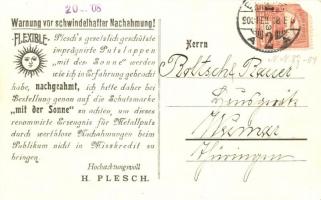 20 08
Warnung vor schwindelhafter Nachahmung!
"FLEXIBLE"
Plesch's gesetzlich geschützte
imprägnirte Putzlappen
"mit der Sonne" werden
wie ich in Erfahrung gebracht
habe, nachgeahmt, ich bitte daher bei
Bestellung genau auf die Schutzmarke
"mit der Sonne" zu achten, um dieses
renommirte Erzeugnis für Metallputz
durch wertlose Nachahmungen beim
Publikum nicht in Misskredit zu
bringen.
Hochachtungsvoll
H. PLESCH.
Herrn
Weimar
Thüringen